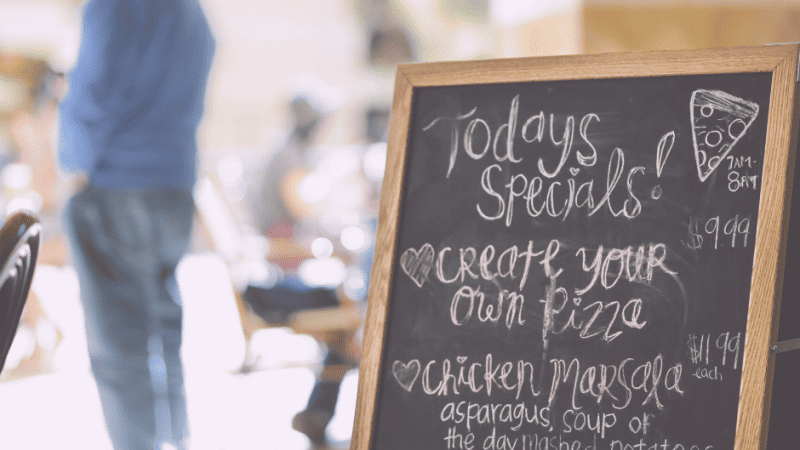 Todays
Specials!
7AM-
8PM
$9.99
Create your
Own Pizza
$11.99
each
Chicken Marsala
asparagus, soup of
the day, mashed potatoes